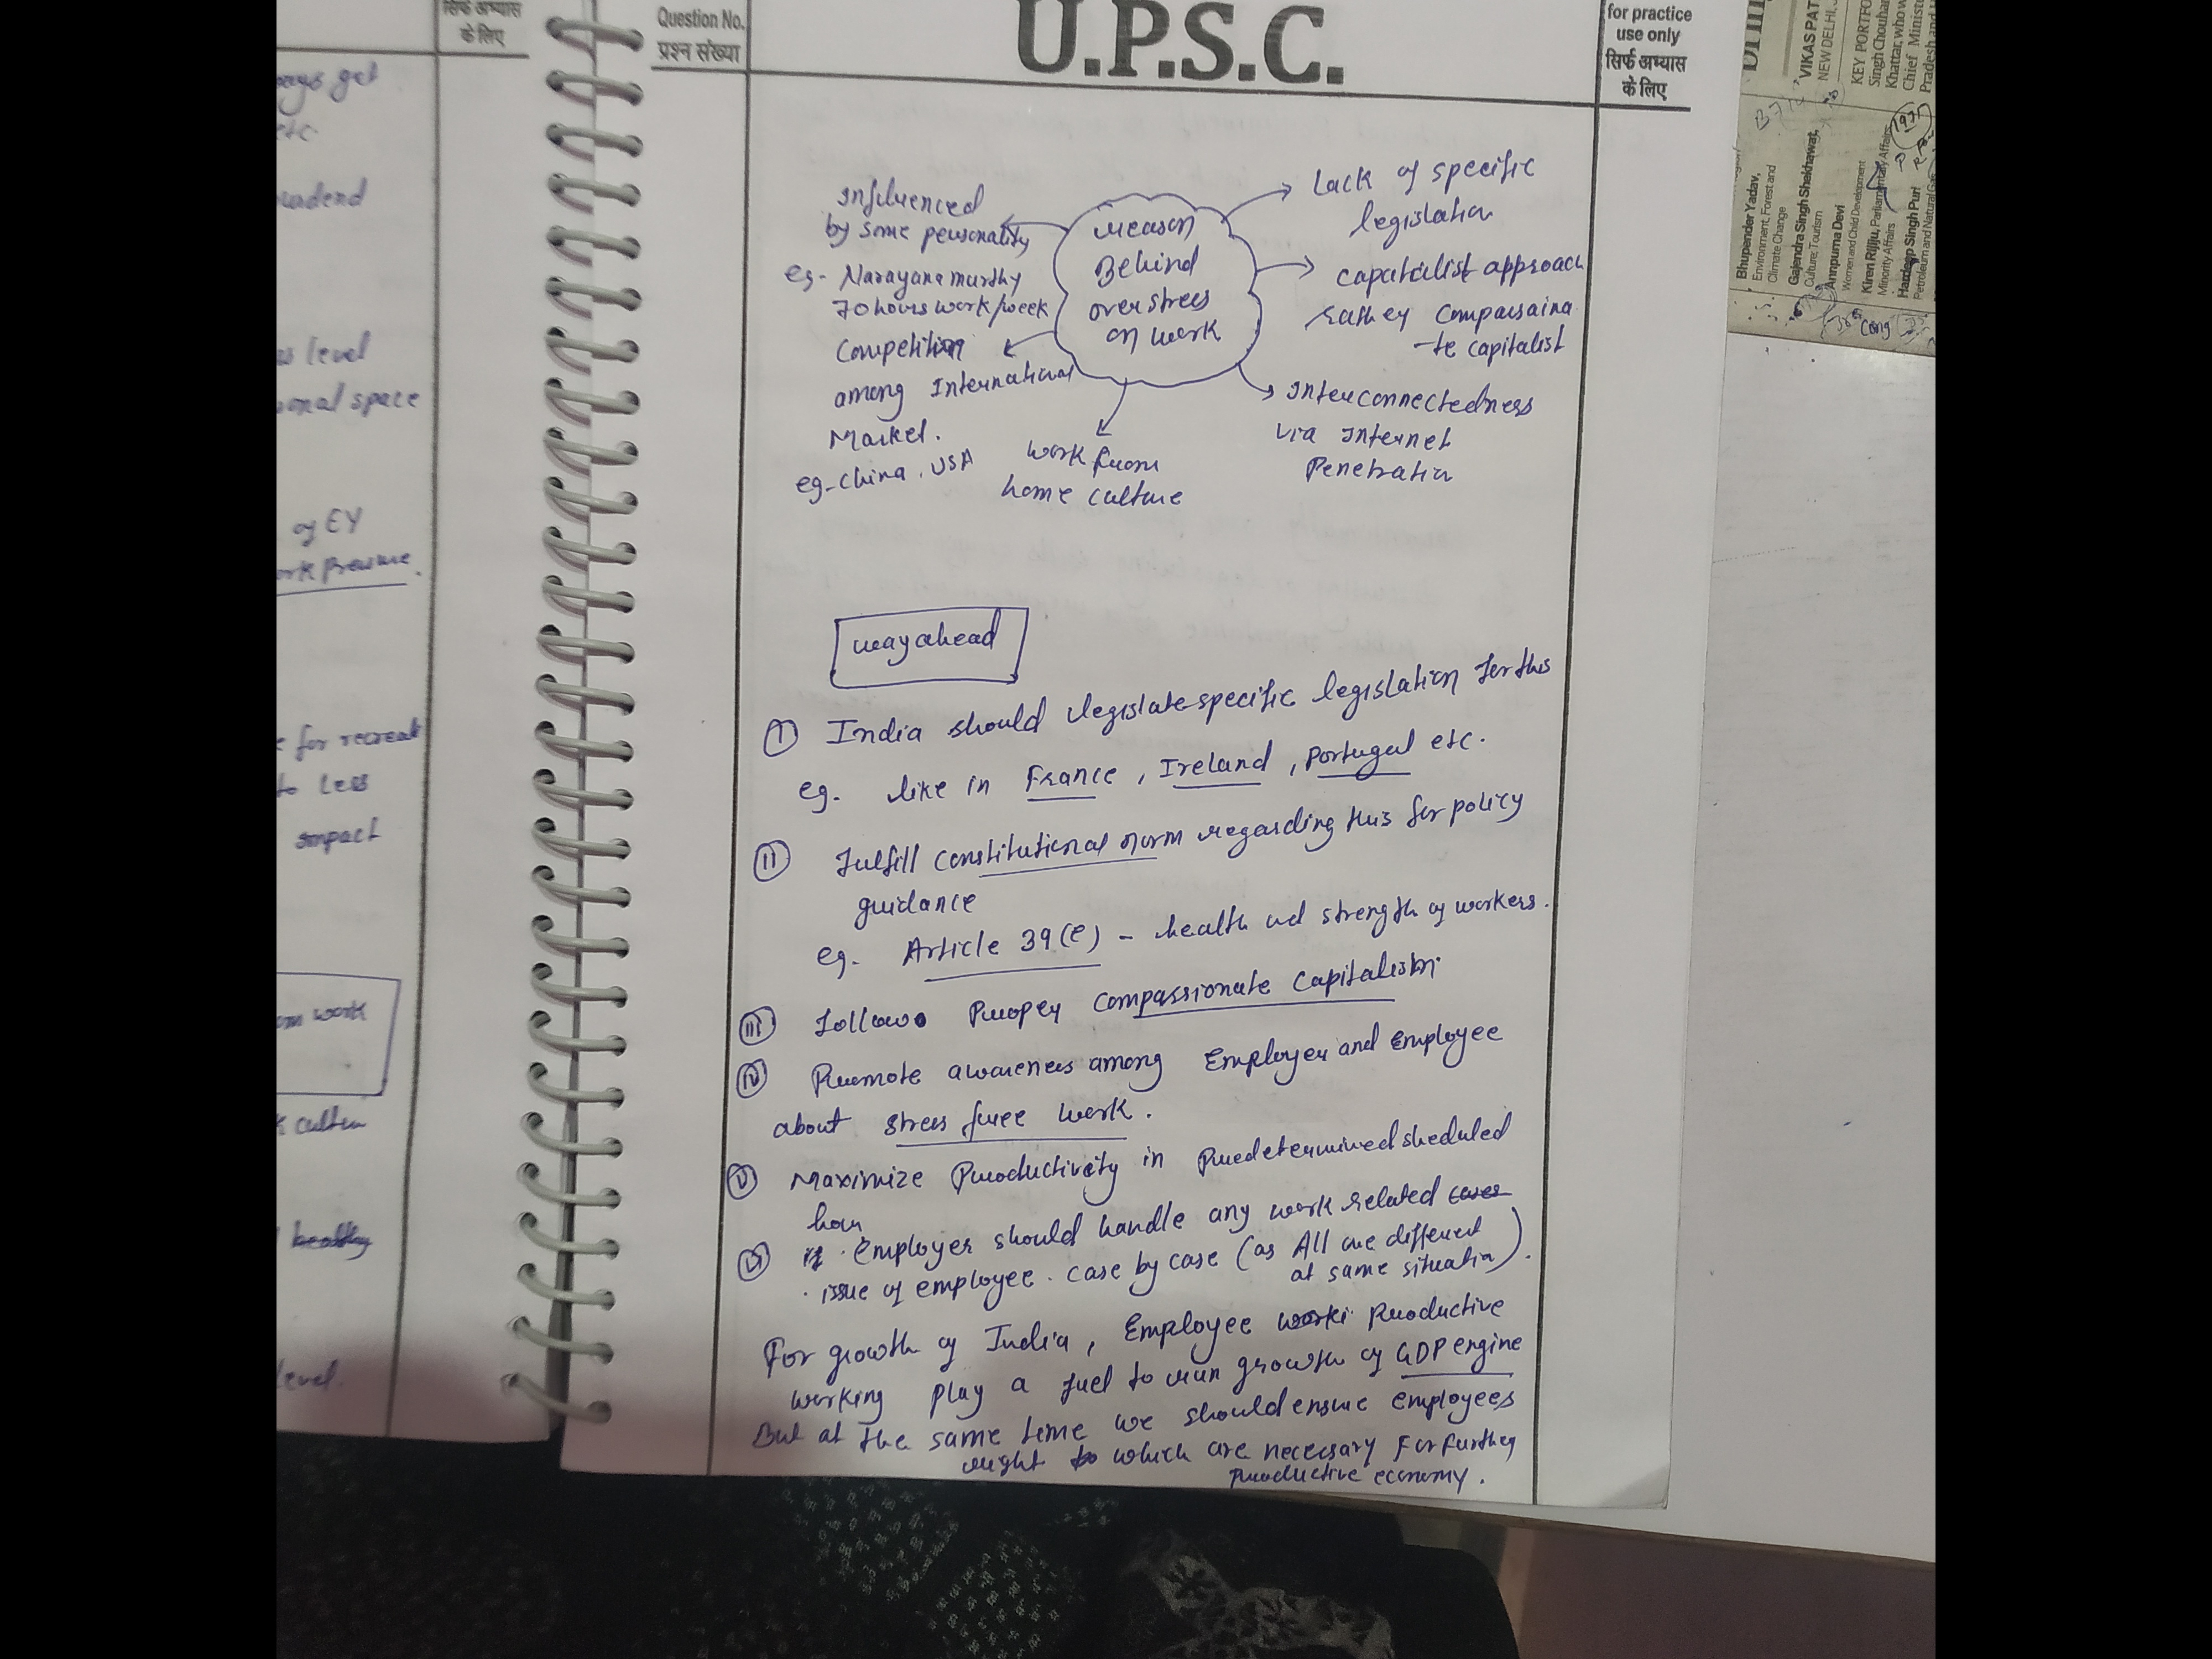 सिर्फ अभ्यास
के लिए
ays get
etc
level
onal space
of EY
ork Pressure.
for recreat
to less
impact
om work
healthy
level.
Question No.
प्रश्न संख्या
U.P.S.C.
for practice
use only
सिर्फ अभ्यास
के लिए
reason
Behind
overstress
on work
Influenced
by some personality
eg- Narayana murthy
70 hours work/week
Competition
among International
Market.
eg- China, USA
work from
home culture
Lack of specific
legislation
capatalist approach
rather Compassiona
-te capitalist
Interconnectedness
via Internet
Penetration
way ahead
I India should legislate specific legislation for this
eg. like in France, Ireland, Portugal etc.
II Fulfill constitutional norm regarding this for policy
guidance
eg. Article 39(e) - health nd strength of workers.
III Follow Proper Compassionate Capitalism.
IV Promote awareness among Employer and Employee
about stress free work.
V Maximize Productivity in Predetermined sheduled
hour
VI if Employer should handle any work related cases
issue of employee. case by case (as All are different
at same situation).
For growth of India, Employee worki Productive
working play a fuel to run growth of GDP engine
But at the same time we should ensure employees
right to which are necessary For further
productive economy.
VIKAS PAT
NEW DELHI,
KEY PORTFO
Singh Chouha
Khattar, who w
Chief Minist
Pradesh and
Bhupender Yadav,
Environment, Forest and
Climate Change
Gajendra Singh Shekhawat,
Culture; Tourism
Annpurna Devi
Women and Child Development
Kiren Rijiju, Parliamentary Affairs,
Minority Affairs
Hardeep Singh Puri
Petroleum and Natural Gas
1971
Cong